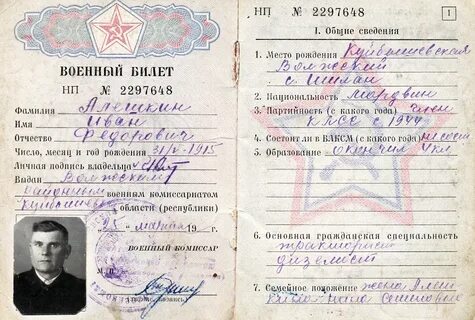 ВОЕННЫЙ БИЛЕТ
НП № 2297648
Фамилия Алешкин
Имя Иван
Отчество Федорович
Число, месяц и год рождения 31/V-1915
Личная подпись владельца
Выдан Волжским
районным военным комиссариатом
Куйбышевской области (республики)
25 марта 19 г.
ВОЕННЫЙ КОМИССАР
М.П.
(подпись)
НП № 2297648
1
I. Общие сведения
1. Место рождения Куйбышевская
Волжский
с. Шилан
2. Национальность Мордвин
3. Партийность (с какого года) член
КПСС с 1944
4. Состоит ли в ВЛКСМ (с какого года) не состоит
5. Образование окончил 4 кл.
6. Основная гражданская специальность
тракторист
дизелист
7. Семейное положение жена Алеш